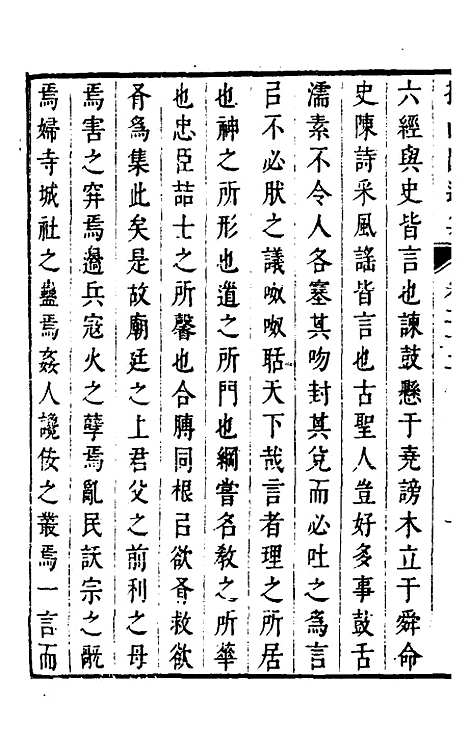 六經與史皆言也諫鼓懸于堯謗木立于舜命
史陳詩采風謡皆言也古聖人豈好多事鼓舌
濡素不令人各塞其吻封其兌而必吐之為言
㠯不必肰之議呶呶聒天下哉言者理之所居
也神之所形也道之所門也綱嘗名敎之所華
也忠臣喆士之所馨也合膊同根㠯欲胥救欲
胥為集此矣是故廟廷之上君父之前利之母
焉害之穽焉邊兵寇火之孽焉亂民訞宗之
焉婦寺城社之蠱焉姦人讒佞之叢焉一言而